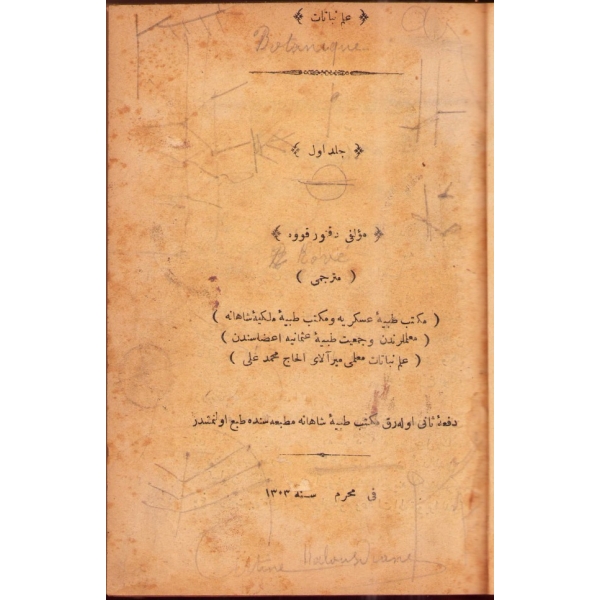 علم نباتات
Botanique
جلد اول
مؤلفى دقتور قووه
( مترجمى )
( مكتب طبيۀ عسكريه و مكتب طبيۀ ملكيۀ شاهانه )
( معلملرندن و جمعيت طبيۀ عثمانيه اعضاسندن )
( علم نباتات معلمى ميرآلاى الحاج محمد على )
دفعۀ ثانى اوله‌رق مكتب طبيۀ شاهانه مطبعه سنده طبع اولنمشدر
فى محرم سنه ١٣٠٣